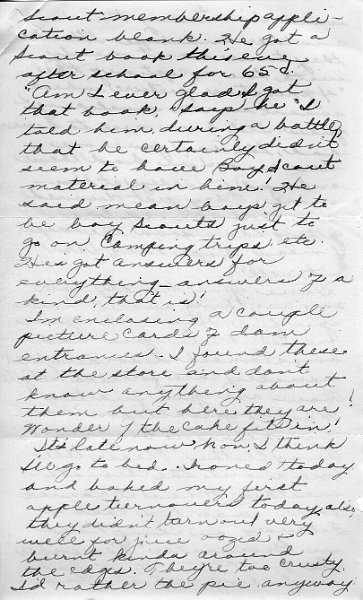 Scout membership appli-
cation blank. He got a
Scout book this eve
after school for 65¢.
"Am I ever glad I got
that book," says he "I
told him, during a battle,
that he certainly didn't
seem to have Boy Scout
material in him! He
said mean boys get to
be boy Scouts just to
go on Camping trips, etc.
He's got answers for
everything - answers of a
kind, that is!
I'm enclosing a couple
picture cards of
entrances. I found these
at the store and don't
know anything about
them but here they are!
Wonder if the cake fit in!
It's late now Ron, I think
I'll go to bed. Ironed today
and baked my first
apple turnovers today, also
they didn't turn out very
well for juice oozed &
burnt kinda around
the edges. They're too crusty.
I'd rather the pie anyway.